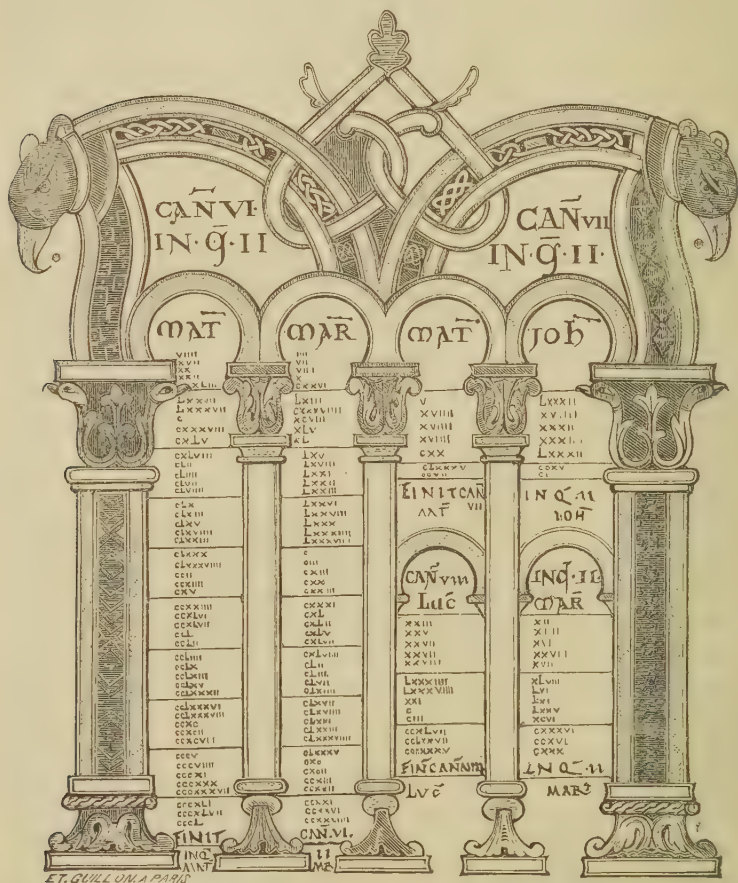 CAN̄ VI·
IN·Q̄·II
CAN̄ VII
IN·Q̄·II·
MAT̄
MAR̄
MAT̄
JOH̄
VIIII
XVII
XX
XXII
LXXVII
LXXXVII
C
CXXXVIIII
CXLV
CXLVIII
CLII
CLIIII
CLVII
CLVIIII
CLX
CLXIII
CLXV
CLXVIIII
CLXXIII
CLXXX
CLXXXVIII
CCII
CCXIIII
CCXV
CCXXIIII
CCXLVI
CCXLVII
CCL
CCLII
CCLIIII
CCLX
CCLXIII
CCLXV
CCLXXXII
CCLXXXVI
CCLXXXVIII
CCXC
CCXCII
CCXCVII
CCCV
CCCVIIII
CCCXI
CCCXXX
CCCXXXVII
CCCXLI
CCCXLVII
CCCL
FINIT
INQ̄
MAT
VII
VIIII
X
CXXVI
LXIII
XCVIII
XLV
XL
LXV
LXVIII
LXXI
LXXII
LXXIII
LXXVI
LXXVIII
LXXX
C
CXIII
CXX
CXXIII
CXXXI
CXL
CXLII
CXLV
CXLVII
CXLVIII
CLII
CLIII
CLVII
CLXVII
CLXVIIII
CLXXI
CLXXIII
CLXXXVIIII
CLXXXV
CAN̄.VI.
II
MR
V
XVIIII
XVIIII
XVIIII
CXX
CLXXXV
FINITCAN̄
MAT̄ VII
LXXXII
XXXII
LXXXII
CCXV
IN Q̄ II
IOH̄
CAN̄ VIII
LUC̄
XXIII
XXV
XXVII
XXVII
XXVIII
LXXXIIII
LXXXVIIII
XXI
C
CIII
CCXLVII
CCLXXVII
FIN̄CAN̄VIII
LUC̄
INQ̄·II
MAR̄
XII
XVI
XXVII
XVII
XLVIII
LVI
LVI
LXXV
XCVI
CXXXVI
CCXVI
CXXX
IN Q̄ II
MAR̄
ET. GUILLON. A PARIS